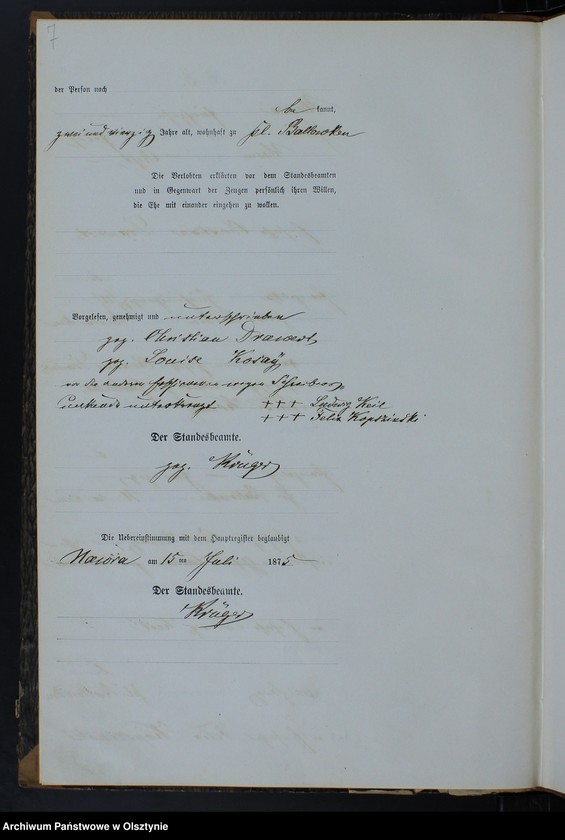 7
der Person nach
be kannt,
zweiundvierzig Jahre alt, wohnhaft zu kl. Ballowken
Die Verlobten erklärten vor dem Standesbeamten
und in Gegenwart der Zeugen persönlich ihren Willen,
die Ehe mit einander eingehen zu wollen.
Vorgelesen, genehmigt und unterschrieben
gez. Christian
gez. Louise
die anderen wegen Schreibens
unkunde unterkreuzt +++ Ludwig Keil
+++ Felix Kopczinski
Der Standesbeamte.
gez. Krüger
Die Uebereinstimmung mit dem Hauptregister beglaubigt
am 15 ten Juli 1875
Der Standesbeamte.
Krüger
Archiwum Państwowe w Olsztynie